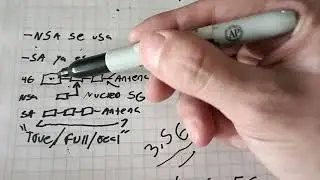 -NSA se usa
-SA ya
4G Antena
NSA NUCLEO 5G
SA Antena
"True/Full/Real"
?
3.5G
AP